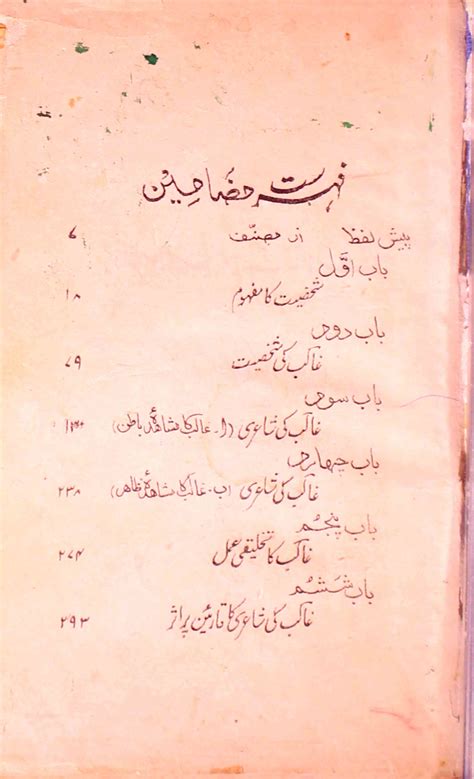 فہرست مضامین
پیش لفظ از مصنّف ۷
باب اوّل
شخصیت کا مفہوم ۱۸
باب دوم
غالب کی شخصیت ۷۹
باب سوم
غالب کی شاعری (ا۔ غالب کا مشاہدۂ باطن)
باب چہارم
غالب کی شاعری (ب۔ غالب کا مشاہدۂ ظاہر) ۲۳۸
باب پنجم
غالب کا تخلیقی عمل ۲۷۴
باب ششم
غالب کی شاعری کا قارئین پر اثر ۲۹۳